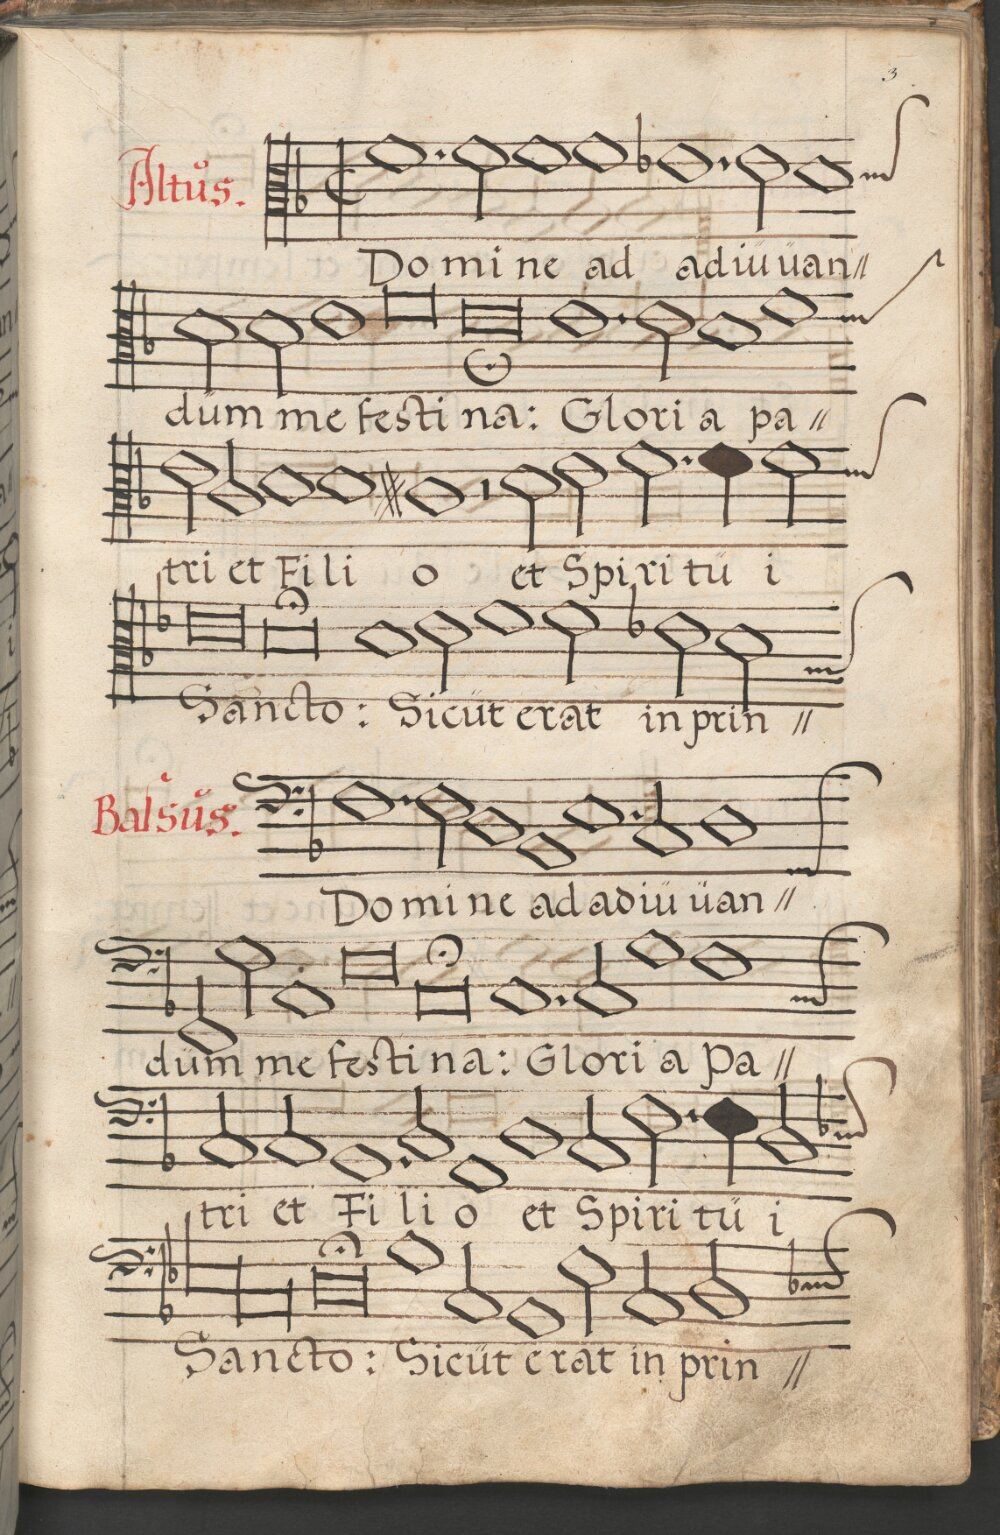 3
Altůs.
Domine ad adiüüan //
düm me festina: Gloria pa //
tri et Filio et Spiritü i
Sancto: Sicüt erat in prin //
Balsůs.
Domine ad adiüüan //
düm me festina: Gloria Pa //
tri et Filio et Spiritü i
Sancto: Sicüt erat in prin //